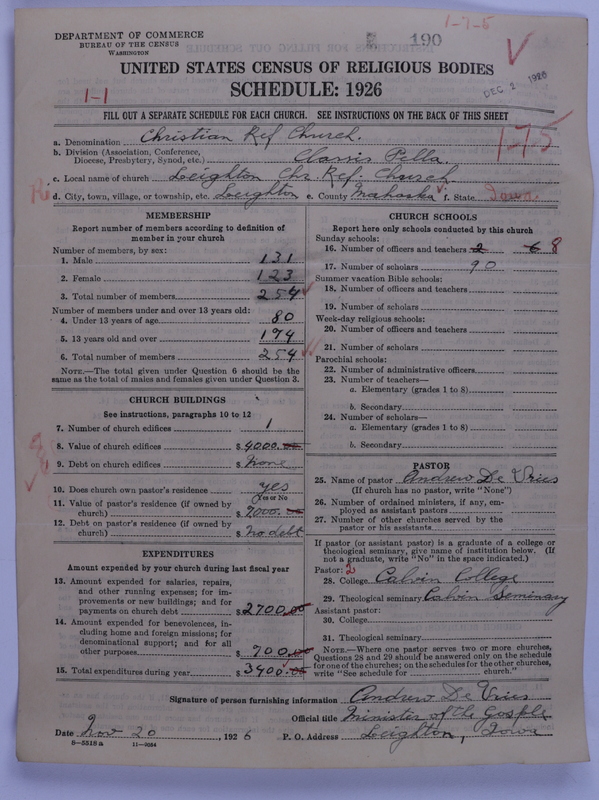 1-7-5
DEPARTMENT OF COMMERCE
BUREAU OF THE CENSUS
WASHINGTON
190
UNITED STATES CENSUS OF RELIGIOUS BODIES
DEC 2 1926
1-1
SCHEDULE: 1926
FILL OUT A SEPARATE SCHEDULE FOR EACH CHURCH. SEE INSTRUCTIONS ON THE BACK OF THIS SHEET
1-7-5
a. Denomination Christian Ref Church.
b. Division (Association, Conference, Diocese, Presbytery, Synod, etc.) Classis Pella
c. Local name of church Leighton Chr. Ref. Church
d. City, town, village, or township, etc. Leighton e. County Mahaska f. State Iowa
MEMBERSHIP
Report number of members according to definition of member in your church
Number of members, by sex:
1. Male 131
2. Female 123
3. Total number of members 254
Number of members under and over 13 years old:
4. Under 13 years of age 80
5. 13 years old and over 174
6. Total number of members 254
NOTE.—The total given under Question 6 should be the same as the total of males and females given under Question 3.
CHURCH BUILDINGS
See instructions, paragraphs 10 to 12
7. Number of church edifices 1
8. Value of church edifices $ 9000.00
9. Debt on church edifices $ None
10. Does church own pastor's residence yes
(Yes or No
11. Value of pastor's residence (if owned by church) $ 7000.00
12. Debt on pastor's residence (if owned by church) $ No debt
EXPENDITURES
Amount expended by your church during last fiscal year
13. Amount expended for salaries, repairs, and other running expenses; for improvements or new buildings; and for payments on church debt $ 2700.00
14. Amount expended for benevolences, including home and foreign missions; for denominational support; and for all other purposes $ 700.00
15. Total expenditures during year $ 3400.00
CHURCH SCHOOLS
Report here only schools conducted by this church
Sunday schools:
16. Number of officers and teachers 2 6 8
17. Number of scholars 90
Summer vacation Bible schools:
18. Number of officers and teachers
19. Number of scholars
Week-day religious schools:
20. Number of officers and teachers
21. Number of scholars
Parochial schools:
22. Number of administrative officers
23. Number of teachers—
a. Elementary (grades 1 to 8)
b. Secondary
24. Number of scholars—
a. Elementary (grades 1 to 8)
b. Secondary
PASTOR
25. Name of pastor Andrew De Vries
(If church has no pastor, write "None")
26. Number of ordained ministers, if any, employed as assistant pastors
27. Number of other churches served by the pastor or his assistants
If pastor (or assistant pastor) is a graduate of a college or theological seminary, give name of institution below. (If not a graduate, write "No" in the space indicated.)
Pastor: 2
28. College Calvin College
29. Theological seminary Calvin Seminary
Assistant pastor:
30. College
31. Theological seminary
NOTE.—Where one pastor serves two or more churches, Questions 28 and 29 should be answered only on the schedule for one of the churches; on the schedules for the other churches, write "See schedule for church."
Signature of person furnishing information Andrew De Vries
Official title Minister of the Gosple
Date Nov 20, 1926 P. O. Address Leighton, Iowa
8—5518 a 11—9064